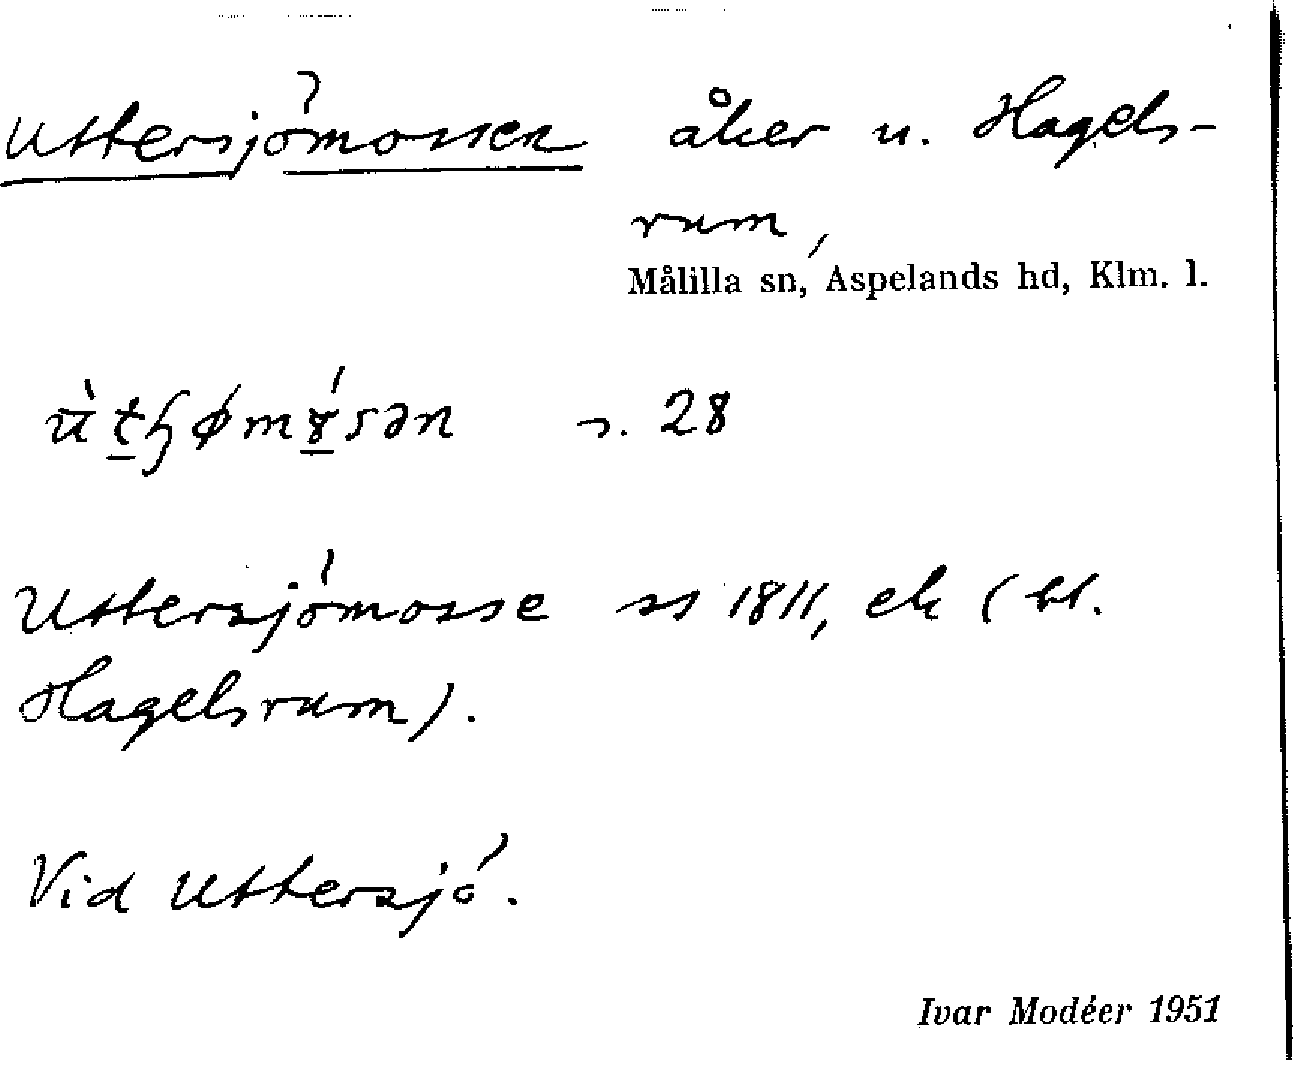 Uttersjömossen åker u. Hagels-
rum,
Målilla sn, Aspelands hd, Klm. l.
s. 28
Uttersjömosse ss 1811, ek (bl.
Hagelsrum).
Vid Uttersjö.
Ivar Modéer 1951